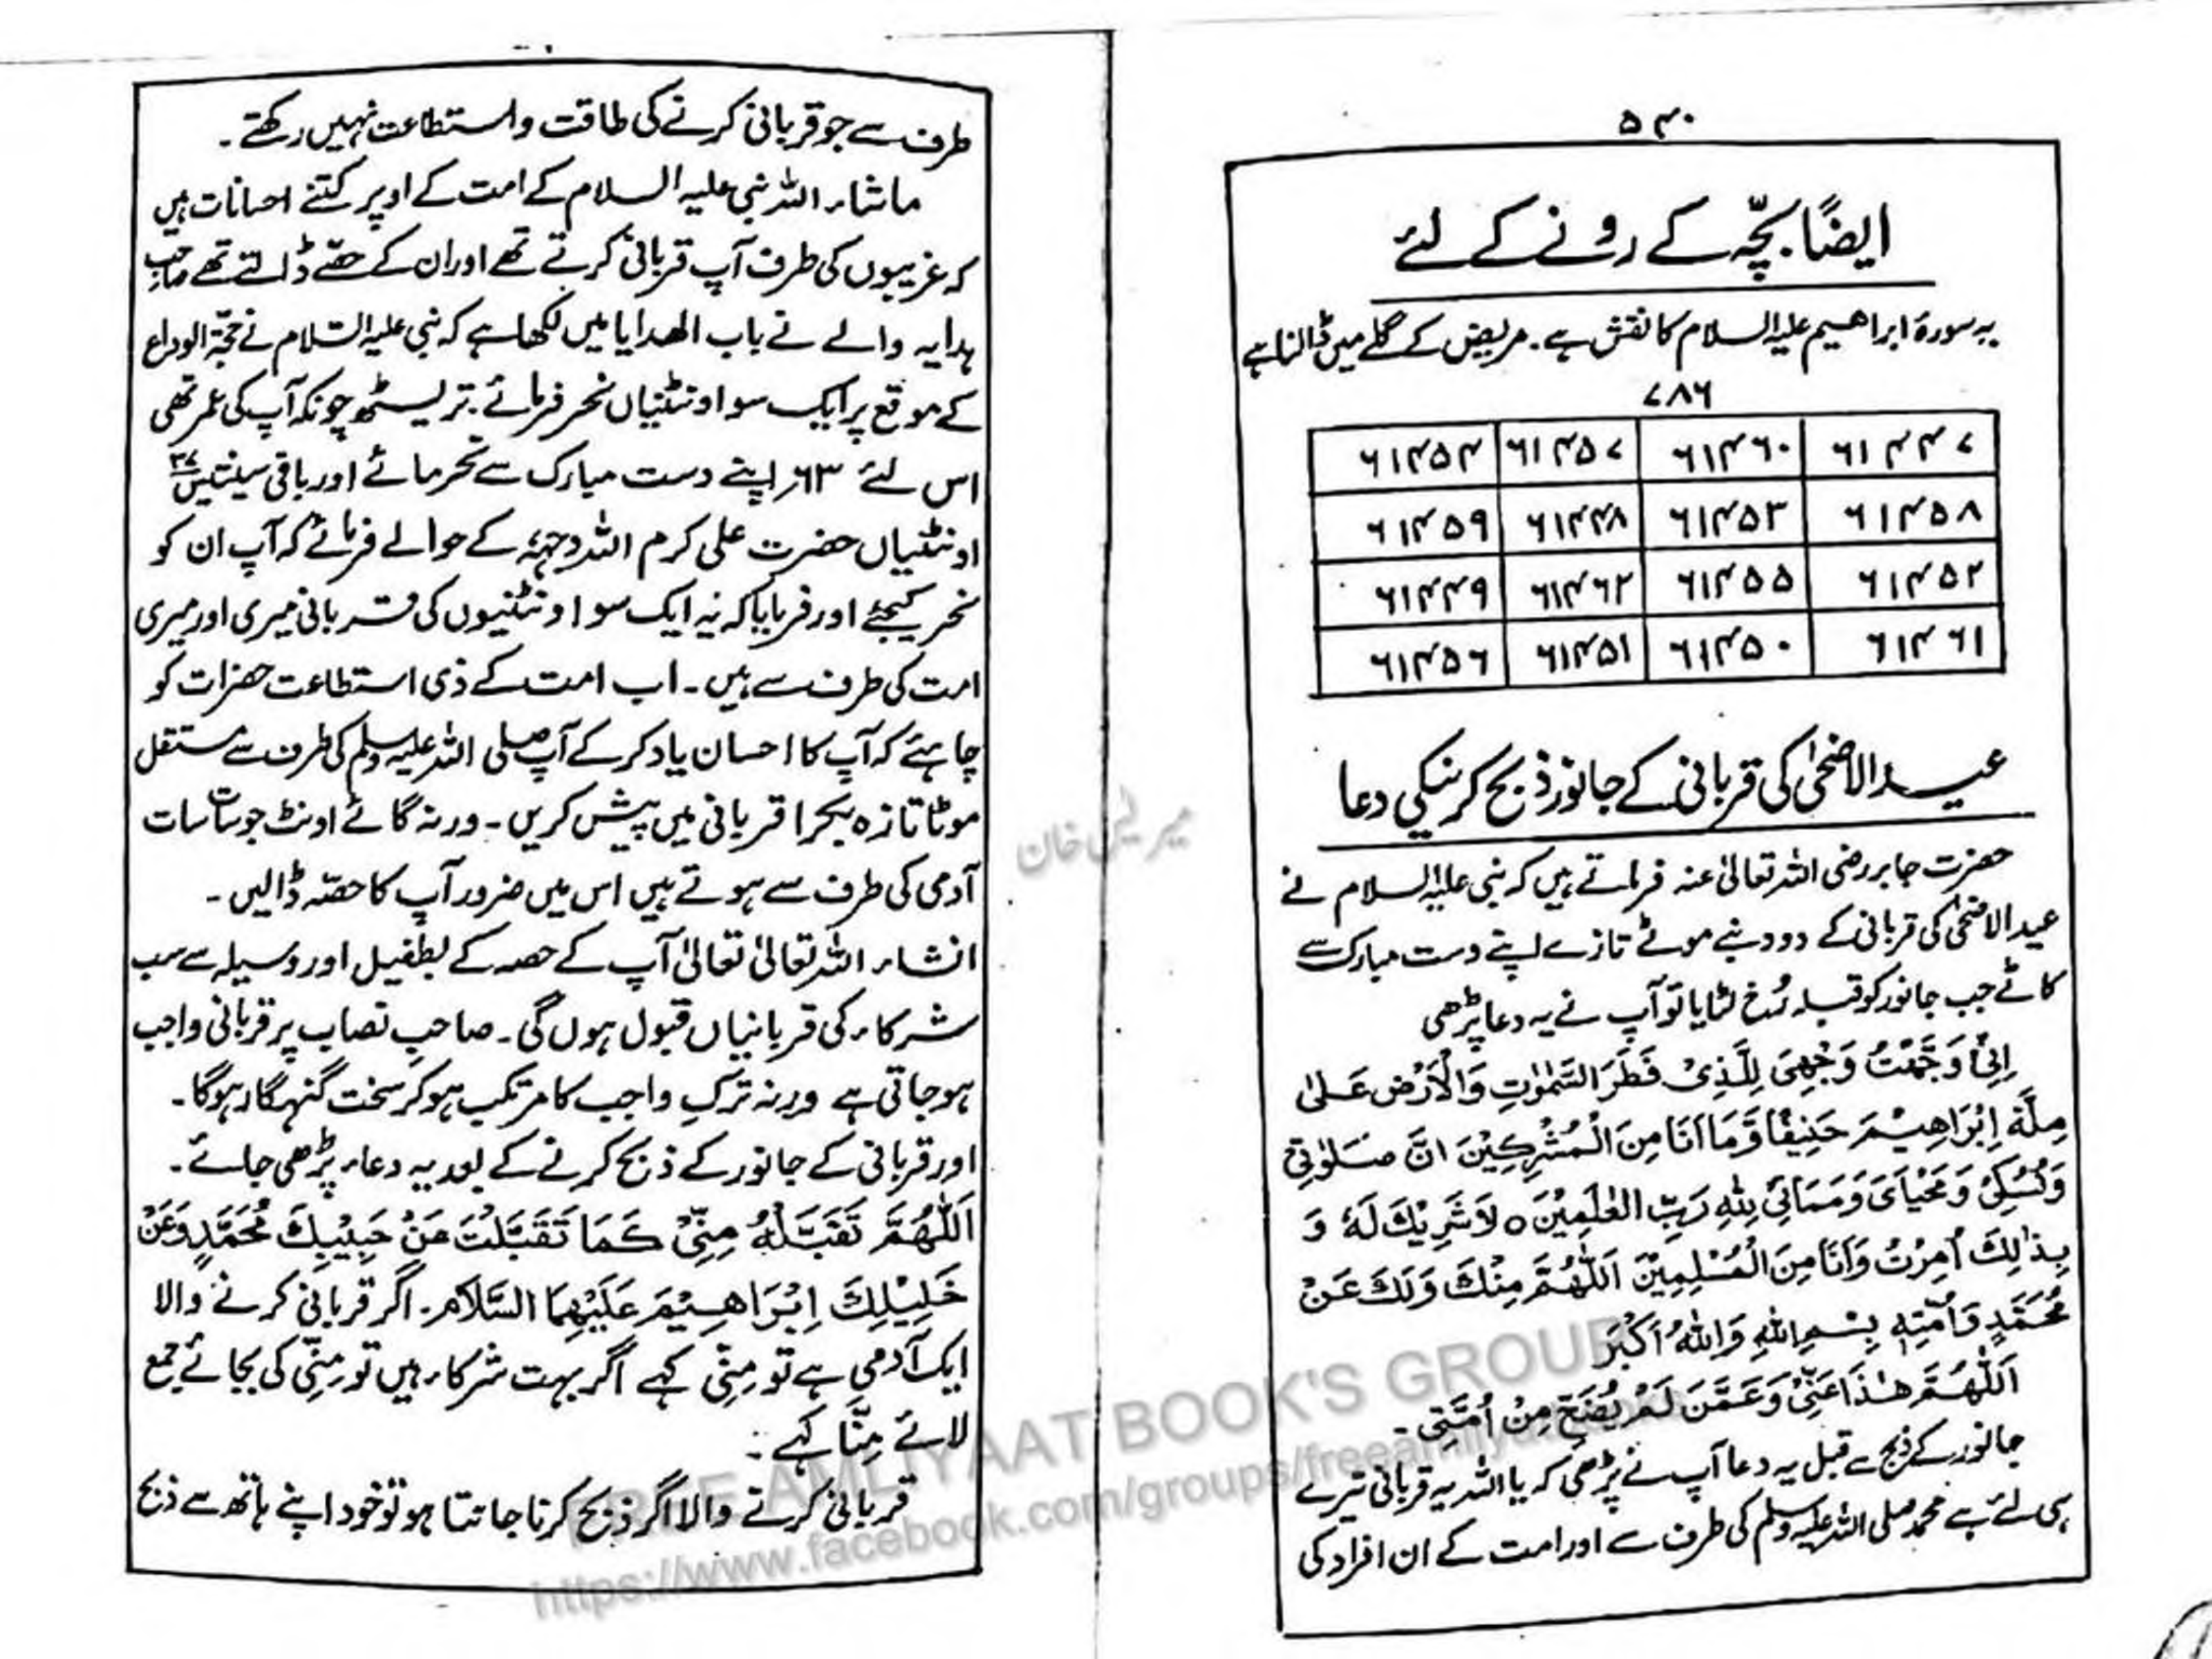 ۵۴۰
ایضًا بچّہ کے رونے کے لئے
یہ سورۂ ابراھیم علیہ السلام کا نقش ہے۔ مریض کے گلے میں ڈالنا ہے
۷۸۶
۶۱۴۵۴ ۶۱۴۵۷ ۶۱۴۶۰ ۶۱۴۴۷
۶۱۴۵۹ ۶۱۴۴۸ ۶۱۴۵۳ ۶۱۴۵۸
۶۱۴۴۹ ۶۱۴۶۲ ۶۱۴۵۵ ۶۱۴۵۲
۶۱۴۵۶ ۶۱۴۵۱ ۶۱۴۵۰ ۶۱۴۶۱
عید الاضحیٰ کی قربانی کے جانور ذبح کرنیکی دعا
حضرت جابر رضی اللہ تعالیٰ عنہ فرماتے ہیں کہ نبی علیہ السلام نے
عید الاضحیٰ کی قربانی کے دو دنبے موٹے تازے اپنے دست مبارک سے
کاٹے جب جانور کو قبلہ رُخ لٹایا تو آپ نے یہ دعا پڑھی
اِنِّیْ وَجَّهْتُ وَجْهِیَ لِلَّذِیْ فَطَرَ السَّمٰوٰتِ وَالْاَرْضَ عَلٰی
مِلَّةِ اِبْرَاهِیْمَ حَنِیْفًا وَّمَا اَنَا مِنَ الْمُشْرِکِیْنَ اِنَّ صَلَوٰتِیْ
وَنُسُکِیْ وَمَحْیَایَ وَمَمَاتِیْ لِلّٰهِ رَبِّ الْعٰلَمِیْنَ ○ لَاشَرِیْكَ لَهٗ وَ
بِذٰلِكَ اُمِرْتُ وَاَنَا مِنَ الْمُسْلِمِیْنَ اَللّٰهُمَّ مِنْكَ وَلَكَ عَنْ
مُحَمَّدٍ وَاُمَّتِهٖ بِسْمِ اللّٰهِ وَاللّٰهُ اَکْبَرُ
اَللّٰهُمَّ هٰذَا عَنِّیْ وَعَمَّنْ لَمْ یُضَحِّ مِنْ اُمَّتِیْ۔
جانور کے ذبح سے قبل یہ دعا آپ نے پڑھی کہ یا اللہ یہ قربانی تیرے
ہی لئے ہے محمد صلی اللہ علیہ وسلم کی طرف سے اور امت کے ان افراد کی
طرف سے جو قربانی کرنے کی طاقت و استطاعت نہیں رکھتے۔
ماشاء اللہ نبی علیہ السلام کے امت کے اوپر کتنے احسانات ہیں
کہ غریبوں کی طرف آپ قربانی کرتے تھے اور ان کے حصّے ڈالتے تھے صاحبِ
ہدایہ والے نے باب الھدایا میں لکھا ہے کہ نبی علیہ السّلام نے حجّۃ الوداع
کے موقع پر ایک سو اونٹنیاں نحر فرمائے۔ تریسٹھ چونکہ آپ کی عمر تھی
اس لئے ۶۳ اپنے دست مبارک سے نحر فرمائے اور باقی سینتیس ۳۷
اونٹنیاں حضرت علی کرم اللہ وجہہٗ کے حوالے فرمائے کہ آپ ان کو
نحر کیجئے اور فرمایا کہ یہ ایک سو اونٹنیوں کی قربانی میری اور میری
امت کی طرف سے ہیں۔ اب امت کے ذی استطاعت حضرات کو
چاہئے کہ آپ کا احسان یاد کر کے آپ صلی اللہ علیہ وسلم کی طرف سے مستقل
موٹا تازہ بکرا قربانی میں پیش کریں۔ ورنہ گائے اونٹ جو سات سات
آدمی کی طرف سے ہوتے ہیں اس میں ضرور آپ کا حصّہ ڈالیں۔
انشاء اللہ تعالیٰ تعالیٰ آپ کے حصہ کے بطفیل اور وسیلہ سے سب
شرکاء کی قربانیاں قبول ہوں گی۔ صاحبِ نصاب پر قربانی واجب
ہو جاتی ہے ورنہ ترکِ واجب کا مرتکب ہو کر سخت گنہگار ہوگا۔
اور قربانی کے جانور کے ذبح کرنے کے بعد یہ دعاء پڑھی جائے۔
اَللّٰهُمَّ تَقَبَّلْهُ مِنِّیْ کَمَا تَقَبَّلْتَ مَنْ حَبِیْبِكَ مُحَمَّدٍ وَعَنْ
خَلِیْلِكَ اِبْرَاهِیْمَ عَلَیْهِمَا السَّلَام۔ اگر قربانی کرنے والا
ایک آدمی ہے تو مِنِّی کہے اگر بہت شرکاء ہیں تو مِنِّی کی بجائے جمع
لائے مِنَّا کہے۔
قربانی کرنے والا اگر ذبح کرنا جانتا ہو تو خود اپنے ہاتھ سے ذبح
FREE AMLIYAAT BOOK'S GROUP
https://www.facebook.com/groups/freeamliyatbooks